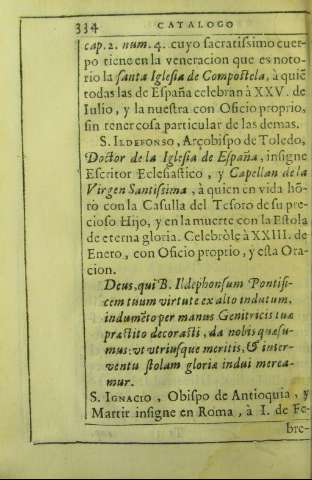 334 CATALOGO
cap. 2. num. 4. cuyo sacratissimo cuer-
po tiene en la veneracion que es noto-
rio la santa Iglesia de Compostela, à quiẽ
todas las de España celebran à XXV. de
Iulio, y la nuestra con Oficio proprio,
sin tener cosa particular de las demas.
S. ILDEFONSO, Arçobispo de Toledo,
Doctor de la Iglesia de España, insigne
Escritor Eclesiastico, y Capellan de la
Virgen Santissima, à quien en vida hõ-
rò con la Casulla del Tesoro de su pre-
cioso Hijo, y en la muerte con la Estola
de eterna gloria. Celebròle à XXIII. de
Enero, con Oficio proprio, y esta Ora-
cion.
Deus, qui B. Ildephonsum Pontifi-
cem tuum virtute ex alto indutum,
indumẽto per manus Genitricis tuæ
præstito decorasti, da nobis quæsu-
mus: vt vtriusque meritis, & inter-
ventu stolam gloriæ indui merea-
mur.
S. IGNACIO, Obispo de Antioquia, y
Martir insigne en Roma, à I. de Fe-
bre-